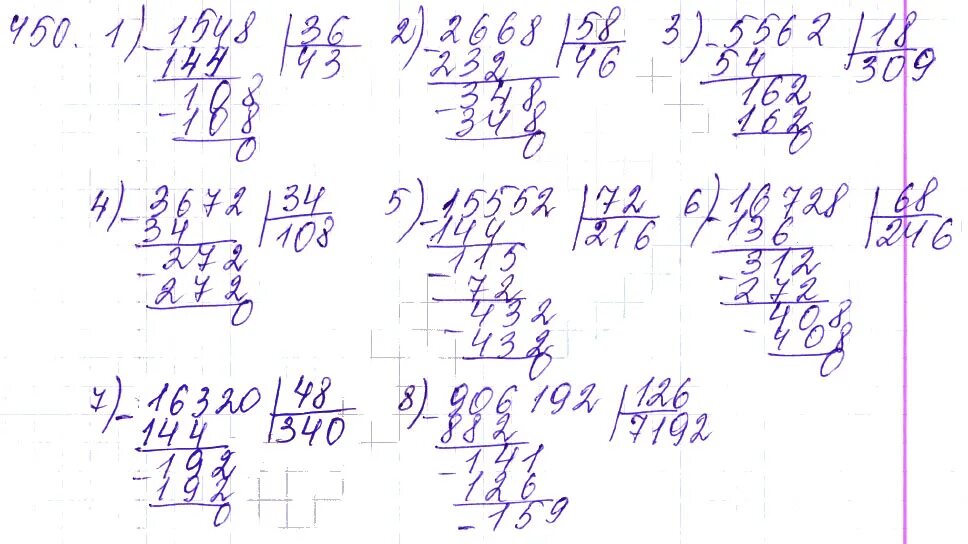 450. 1) -1548 |36 2) -2668 |58 3) -5562 |18
144 |43 232 |46 54 |309
-108 -348 162
108 348 162
0 0 0
4) -3672 |34 5) -15552 |72 6) -16728 |68
34 |108 144 |216 136 |246
-272 115 -312
272 -72 272
0 -432 -408
432 408
0 0
7) -16320 |48 8) -906192 |126
144 |340 882 |7192
-192 -141
192 126
0 -159